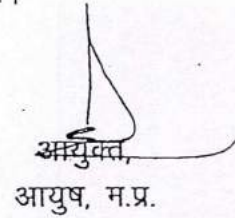 आयुक्त,
आयुष, म.प्र.